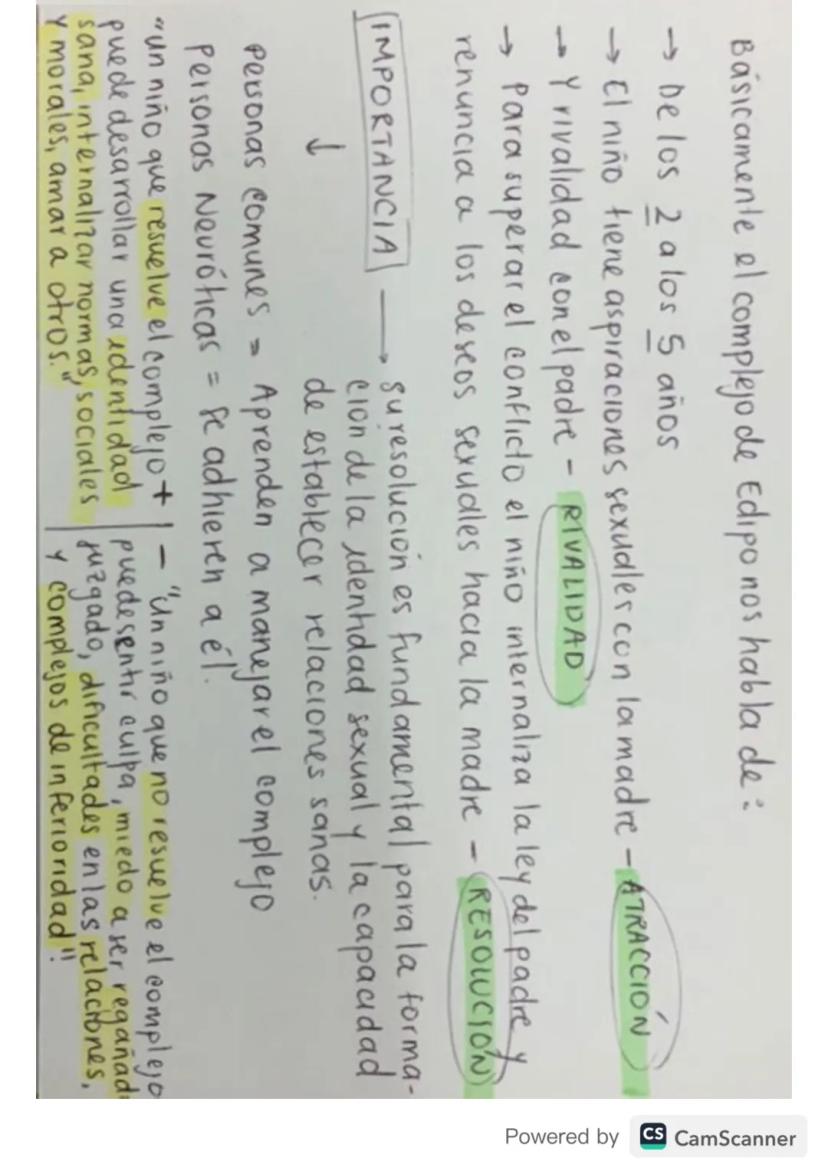 Básicamente el complejo de Edipo nos habla de:
→ De los 2 a los 5 años
→ El niño tiene aspiraciones sexuales con la madre - ATRACCIÓN
→ Y rivalidad con el padre - RIVALIDAD
→ Para superar el conflicto el niño internaliza la ley del padre y
renuncia a los deseos sexuales hacia la madre - RESOLUCIÓN
IMPORTANCIA → su resolución es fundamental para la forma-
ción de la identidad sexual y la capacidad
de establecer relaciones sanas.
↓
Personas comunes = Aprenden a manejar el complejo
Personas Neuróticas = Se adhieren a él.
"Un niño que resuelve el complejo +
puede desarrollar una identidad
sana, internalizar normas, sociales
y morales, amar a otros."
- "Un niño que no resuelve el complejo
puede sentir culpa, miedo a ser regañad
juzgado, dificultades en las relaciones,
y complejos de inferioridad".
Powered by CS CamScanner